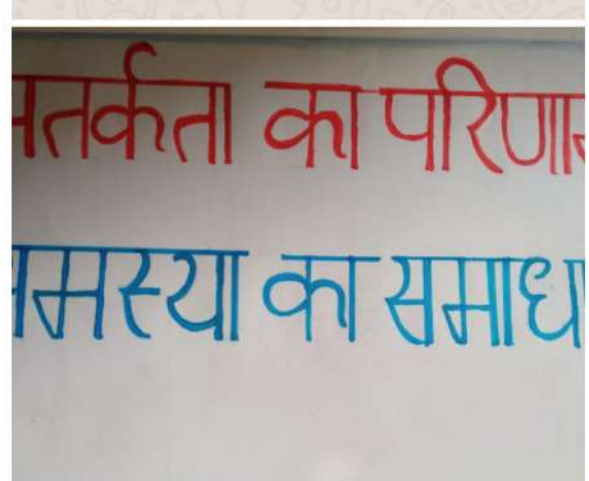 सतर्कता का परिणाम
समस्या का समाधा